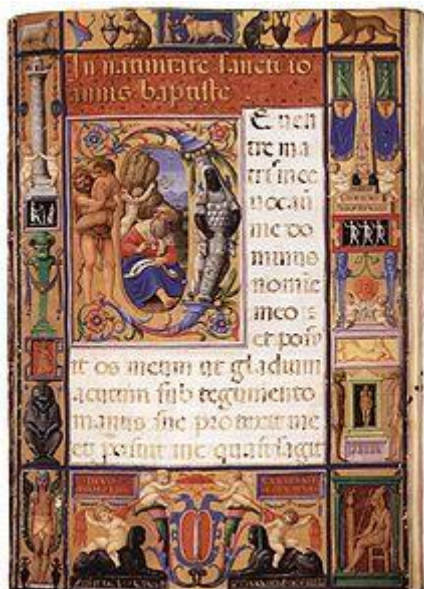 In natiuitate sancti io
annis baptiste
E uen
tre ma
tris mee
uocauit
me do
minus
nomine
meo :
et posu
it os meum ut gladium
acutum sub tegumento
manus sue protexit me
et posuit me quasi sagit